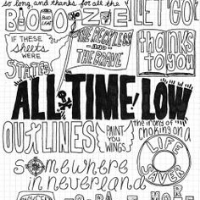 so long and thanks for all the
BOOZE
LET GO!
IF THESE
SHEETS
WERE
STATES
THE RECKLESS
AND
THE BRAVE
thanks to
you
ALL TIME LOW
OUTLINES
PAINT
YOU
WINGS
the irony of
choking on a
LIFE
SAVER
SOMEWHERE
IN NEVERLAND